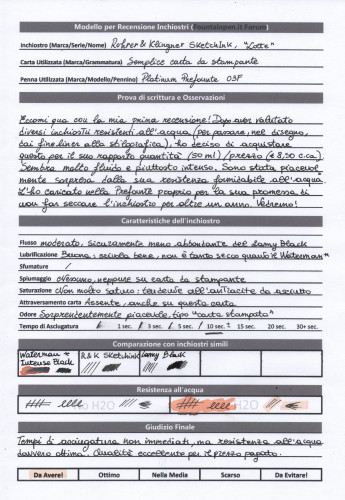 Modello per Recensione Inchiostri (Fountainpen.it Forum)
Inchiostro (Marca/Serie/Nome) Rohrer & Klingner SketchInk, "Lotte"
Carta Utilizzata (Marca/Grammatura) Semplice carta da stampante
Penna Utilizzata (Marca/Modello/Pennino) Platinum Prefounte 03F
Prova di scrittura e Osservazioni
Eccomi qua con la mia prima recensione! Dopo aver valutato
diversi inchiostri resistenti all'acqua (per passare, nel disegno,
dai fineliner alla stilografica), ho deciso di acquistare
questo per il suo rapporto quantità (50 ml) / prezzo (€ 8,50 c.ca).
Sembra molto fluido e piuttosto intenso. Sono stata piacevol
mente sorpresa dalla sua resistenza formidabile all'acqua
L'ho caricato nella Prefounte proprio per la sua promessa di
non far seccare l'inchiostro per oltre un anno. Vedremo!
Caratteristiche dell'inchiostro
Flusso moderato. Sicuramente meno abbondante del Lamy Black
Lubrificazione Buona: scivola bene, non è tanto secco quanto il Waterman*
Sfumature /
Spiumaggio Nessuno, neppure su carta da stampante
Saturazione Non molto saturo: tendente all'antracite da asciutto
Attraversamento carta Assente, anche su questa carta
Odore Sorprendentemente piacevole, tipo "carta stampata"
Tempo di Asciugatura 1 sec. 3 sec. 5 sec. 10 sec. 15 sec. 20 sec. 30+ sec.
Comparazione con inchiostri simili
Waterman * Intense Black R&K Sketchink Lamy Black
Resistenza all'acqua
H2O H2O
Giudizio Finale
Tempi di asciugatura non immediati, ma resistenza all'acqua
davvero ottima. Qualità eccellente per il prezzo pagato.
Da Avere! Ottimo Nella Media Scarso Da Evitare!